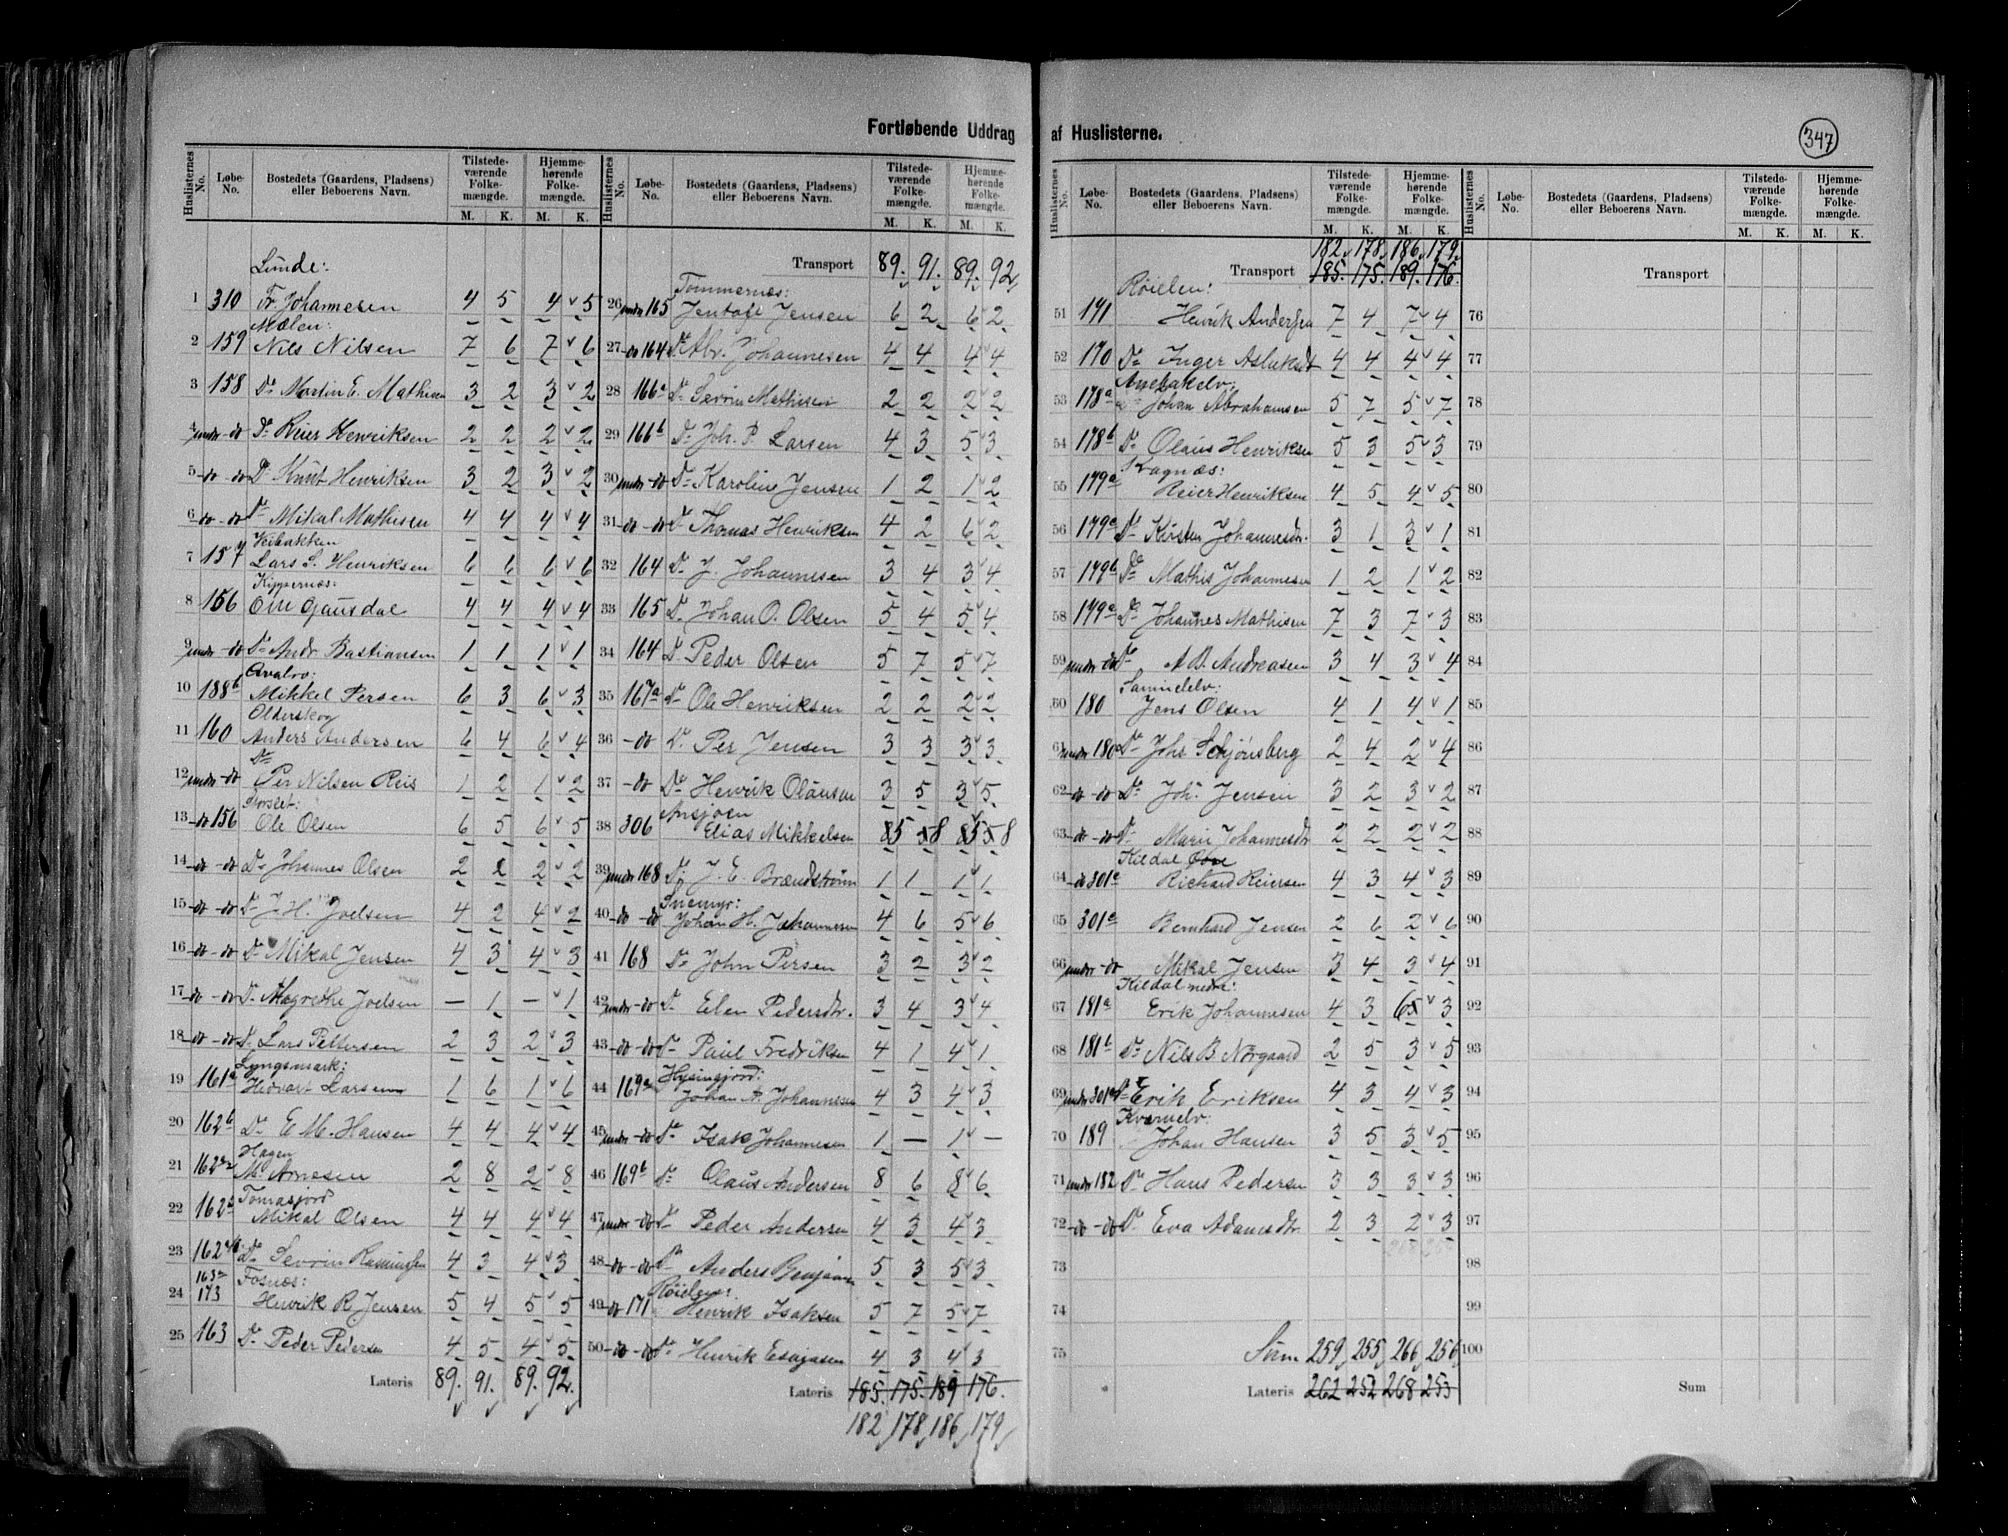 Fortløbende Uddrag af Huslisterne.
347
Huslisternes No. Løbe-No. Bostedets (Gaardens, Pladsens) eller Beboerens Navn. Tilstede-værende Folke-mængde. M. K. Hjemme-hørende Folke-mængde. M. K.
Lunde:
1 310 Fr. Johannesen 4 5 4 5
Mælen:
2 159 Nils Nilsen 7 6 7 6
3 158 Do Martin E. Mathisen 3 2 3 2
4 under do Do Reier Henriksen 2 2 2 2
5 do do Do Knut Henriksen 3 2 3 2
6 do do Do Mikal Mathisen 4 4 4 4
Veibakken
7 157 Lars S. Henriksen 6 6 6 6
Kippernæs:
8 156 Ole Gausdal 4 4 4 4
9 under do Do Andr Bastiansen 1 1 1 1
10 188b Mikkel Persen 6 3 6 3
Olderskog
11 160 Anders Andersen 6 4 6 4
Do
12 under do Per Nilsen Reis 1 2 1 2
Storslet:
13 do 156 Ole Olsen 6 5 6 5
14 do do Do Johannes Olsen 2 2 2 2
15 do do Do J. H. Joelsen 4 2 4 2
16 do do Do Mikal Jensen 4 3 4 3
17 do do Do Magrethe Joelsen — 1 — 1
18 do do Do Lars Pettersen 2 3 2 3
Lyngsmark:
19 161a Hedvart Larsen 1 6 1 6
20 162b Do E M. Hansen 4 4 4 4
Hagen
21 162 M. Arnesen 2 8 2 8
Tomasjord
22 162 Mikal Olsen 4 4 4 4
23 162 Do Sevrin Rasmussen 4 3 4 3
163a Fosnæs:
24 173 Henrik R. Jensen 5 4 5 5
25 163 Do Peder Pedersen 4 5 4 5
Lateris 89. 91. 89. 92.
Huslisternes No. Løbe-No. Bostedets (Gaardens, Pladsens) eller Beboerens Navn. Tilstede-værende Folke-mængde. M. K. Hjemme-hørende Folke-mængde. M. K.
Transport 89. 91. 89. 92
Tømmernæs:
26 under 165 Jentoft Jensen 6 2 6 2
27 do 164 Do Abr. Johannesen 4 4 4 4
28 166a Do Sevrin Mathisen 2 2 2 2
29 166b Do Joh. P. Larsen 4 3 5 3
30 under do Do Karoline Jensen 1 2 1 2
31 do do Do Thomas Henriksen 4 2 6 2
32 164 Do J. Johannesen 3 4 3 4
33 165 Do Johan O. Olsen 5 4 5 4
34 164 Do Peder Olsen 5 7 5 7
35 167a Do Ole Henriksen 2 2 2 2
36 do Do Per Jensen 3 3 3 3
37 do Do Henrik Olausen 3 5 3 5
38 306 Elias Mikkelsen 85 58 85 58
39 under 168 Do J. E. Brændstrøm 1 1 1 1
Snemyr:
40 do do Johan H. Johannesen 4 6 5 6
41 168 Do John Persen 3 2 3 2
42 under do Do Elen Pedersdtr. 3 4 3 4
43 do do Do Paul Fredriksen 4 1 4 1
Hysingjord:
44 169a Johan A. Johannesen 4 3 4 3
45 under do Do Isak Johannesen 1 — 1 —
46 169b Do Olaus Andersen 8 6 8 6
47 under do Do Peder Andersen 4 3 4 3
48 do do Do Anders Benjamin 5 3 5 3
Røielen:
49 do 171 Henrik Isaksen 5 7 5 7
50 do do Do Henrik Esajasen 4 3 4 3
Lateris 185. 175. 189 176.
182 178 186 179
Huslisternes No. Løbe-No. Bostedets (Gaardens, Pladsens) eller Beboerens Navn. Tilstede-værende Folke-mængde. M. K. Hjemme-hørende Folke-mængde. M. K.
182 178 186 179
Transport 185. 175. 189. 176.
Røielen:
51 171 Henrik Andersen 7 4 7 4
52 170 Do Inger Aslaksdt 4 4 4 4
53 178a Do Johan Abrahamsen 5 7 5 7
54 178b Do Olaus Henriksen 5 3 5 3
55 179a Reier Henriksen 4 5 4 5
56 179a Do Kirsten Johannesdr. 3 1 3 1
57 179b Do Mathis Johannesen 1 2 1 2
58 179a Do Johannes Mathisen 7 3 7 3
59 under do Do A B. Andreasen 3 4 3 4
Samuelelv:
60 180 Jens Olsen 4 1 4 1
61 under 180 Do Johs Schjønsberg 2 4 2 4
62 do do Do Joh. Jensen 3 2 3 2
63 do do Do Marie Johannesdt 2 2 2 2
Kildal Øvre
64 do 301a Richard Reiersen 4 3 4 3
65 301a Bernhard Jensen 2 6 2 6
66 under do Mikal Jensen 3 4 3 4
Kildal nedre:
67 181a Erik Johannesen 4 3 65 3
68 181b Do Nils B Norgaard 2 5 3 5
69 under 301a Do Erik Eriksen 4 3 4 3
Kvænelv:
70 189 Johan Hansen 3 5 3 5
71 under 182 Do Hans Pedersen 3 3 3 3
72 do do Do Eva Adamsdtr. 2 3 2 3
73
74
75 Sum 259 255 266 256
Lateris 262 252 268 253
Huslisternes No. Løbe-No. Bostedets (Gaardens, Pladsens) eller Beboerens Navn. Tilstede-værende Folke-mængde. M. K. Hjemme-hørende Folke-mængde. M. K.
Transport
76
77
78
79
80
81
82
83
84
85
86
87
88
89
90
91
92
93
94
95
96
97
98
99
100
Sum